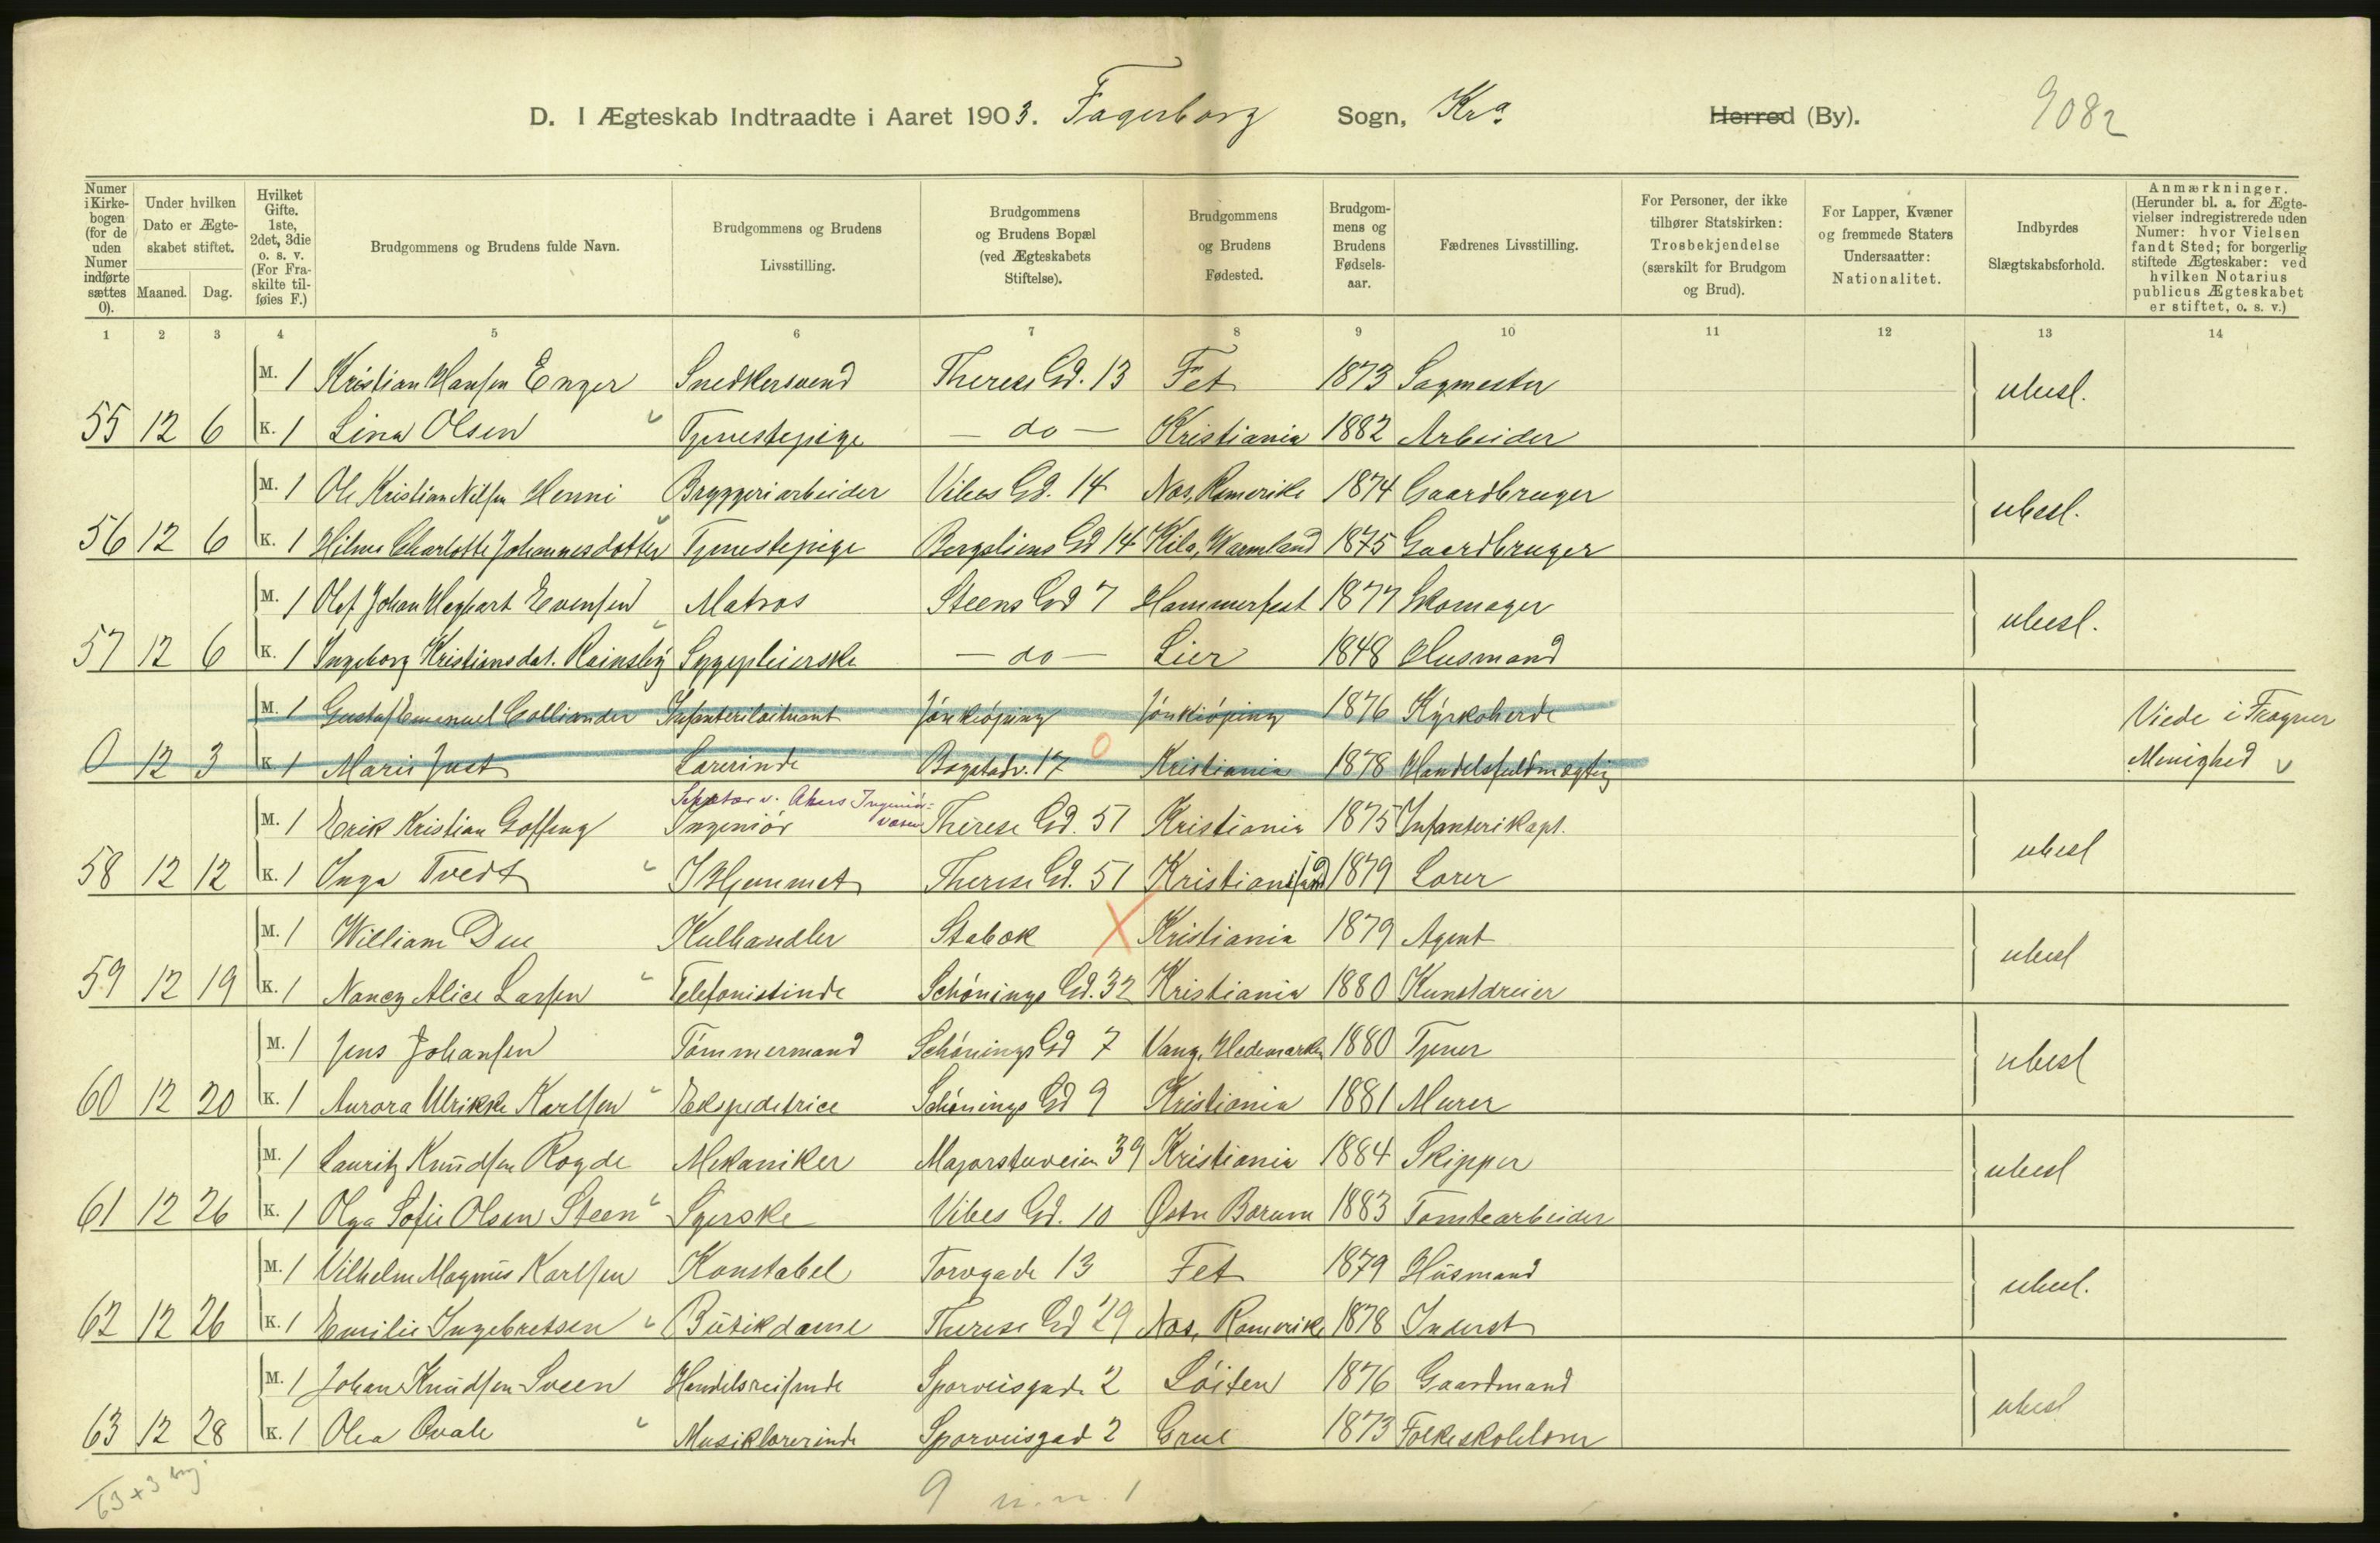 D. I Ægteskab Indtraadte i Aaret 1903. Fagerborg Sogn, Kra. Herred (By). 9082
Numer i Kirkebogen (for de uden Numer indførte sættes 0).
Under hvilken Dato er Ægteskabet stiftet.
Maaned. Dag.
Hvilket Gifte. 1ste, 2det, 3die o. s. v. (For Fraskilte tilføies F.)
Brudgommens og Brudens fulde Navn.
Brudgommens og Brudens Livsstilling.
Brudgommens og Brudens Bopæl (ved Ægteskabets Stiftelse).
Brudgommens og Brudens Fødested.
Brudgommens og Brudens Fødselsaar.
Fædrenes Livsstilling.
For Personer, der ikke tilhører Statskirken: Trosbekjendelse (særskilt for Brudgom og Brud).
For Lapper, Kvæner og fremmede Staters Undersaatter: Nationalitet.
Indbyrdes Slægtskabsforhold.
Anmærkninger. (Herunder bl. a. for Ægtevielser indregistrerede uden Numer: hvor Vielsen fandt Sted; for borgerlig stiftede Ægteskaber: ved hvilken Notarius publicus Ægteskabet er stiftet, o. s. v.)
1 2 3 4 5 6 7 8 9 10 11 12 13 14
M. 1 Kristian Hansen Enger Snedkersvend Therese Gd. 13 Fet 1873 Sagmester ubesl.
55 12 6 K. 1 Lina Olsen Tjenestepige — do — Kristiania 1882 Arbeider
M. 1 Ole Kristian Nilsen Henni Bryggeriarbeider Vibes Gd. 14 Næs, Romerike 1874 Gaardbruger ubesl.
56 12 6 K. 1 Hilma Charlotte Johannesdotter Tjenestepige Bergsliens Gd 14 Kila, Wærmland 1875 Gaardbruger
M. 1 Olaf Johan Meghart Evensen Matros Steens Gd 7 Hammerfest 1877 Skomager ubesl.
57 12 6 K. 1 Ingeborg Kristiansdat. Sygepleierske — do — Lier 1848 Husmand
M. 1 Gustaf Emanuel Colliander Infanteriløitnant Jönkiöping Jönkiöping 1876 Kyrkoherde Viede i Frogner
0 12 3 K. 1 Marie Just Lærerinde Bogstadv. 17 0 Kristiania 1878 Handelsfuldmægtig Menighed v
v. Akers Ingeniør-
væsen
M. 1 Erik Kristian Goffeng Ingeniør Therese Gd. 51 Kristiania 1875 Infanterikapt. ubesl
58 12 12 K. 1 Inga Tvedt I Hjemmet Therese Gd. 51 Kristiansund 1879 Lærer
M. 1 William Due Kulhandler Stabæk X Kristiania 1879 Agent ubesl
59 12 19 K. 1 Nancy Alice Larsen Telefonistinde Schønings Gd. 32 Kristiania 1880 Kunstdreier
M. 1 Jens Johansen Tømmermand Schønings Gd 7 Vang, Hedemarken 1880 Tjener ubesl
60 12 20 K. 1 Aurora Ulrikke Karlsen Ekspeditrice Schønings Gd 9 Kristiania 1881 Murer
M. 1 Lauritz Knudsen Rogde Mekaniker Majorstuveien 39 Kristiania 1884 Skipper ubesl
61 12 26 K. 1 Olga Sofie Olsen Steen Syerske Vibes Gd. 10 Østre Bærum 1883 Tomtearbeider
M. 1 Vilhelm Magnus Karlsen Konstabel Torvgade 13 Fet 1879 Husmand ubesl.
62 12 26 K. 1 Emilie Ingebretsen Butikdame Therese Gd 29 Næs, Romerike 1878 Inderst
M. 1 Johan Knudsen Sveen Handelsreisende Sporveisgade 2 Løiten 1876 Gaardmand ubesl
63 12 28 K. 1 Olea Qvale Musiklærerinde Sporveisgad 2 Grue 1873 Folkeskolelærer
63 + 3
9 1